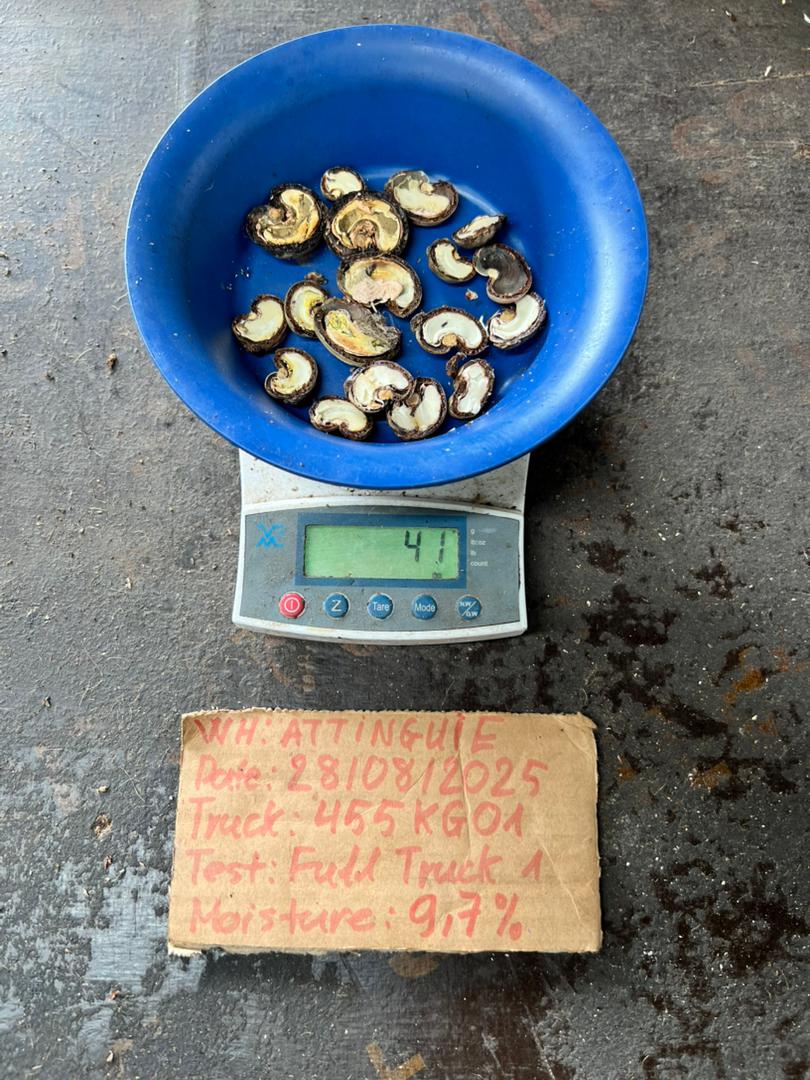 41
g
lb:oz
lb
count
Z
Tare
Mode
NW/GW
WH: ATTINGUIE
Date: 28/08/2025
Truck: 455KG01
Test: Full Truck 1
Moisture: 9,7%